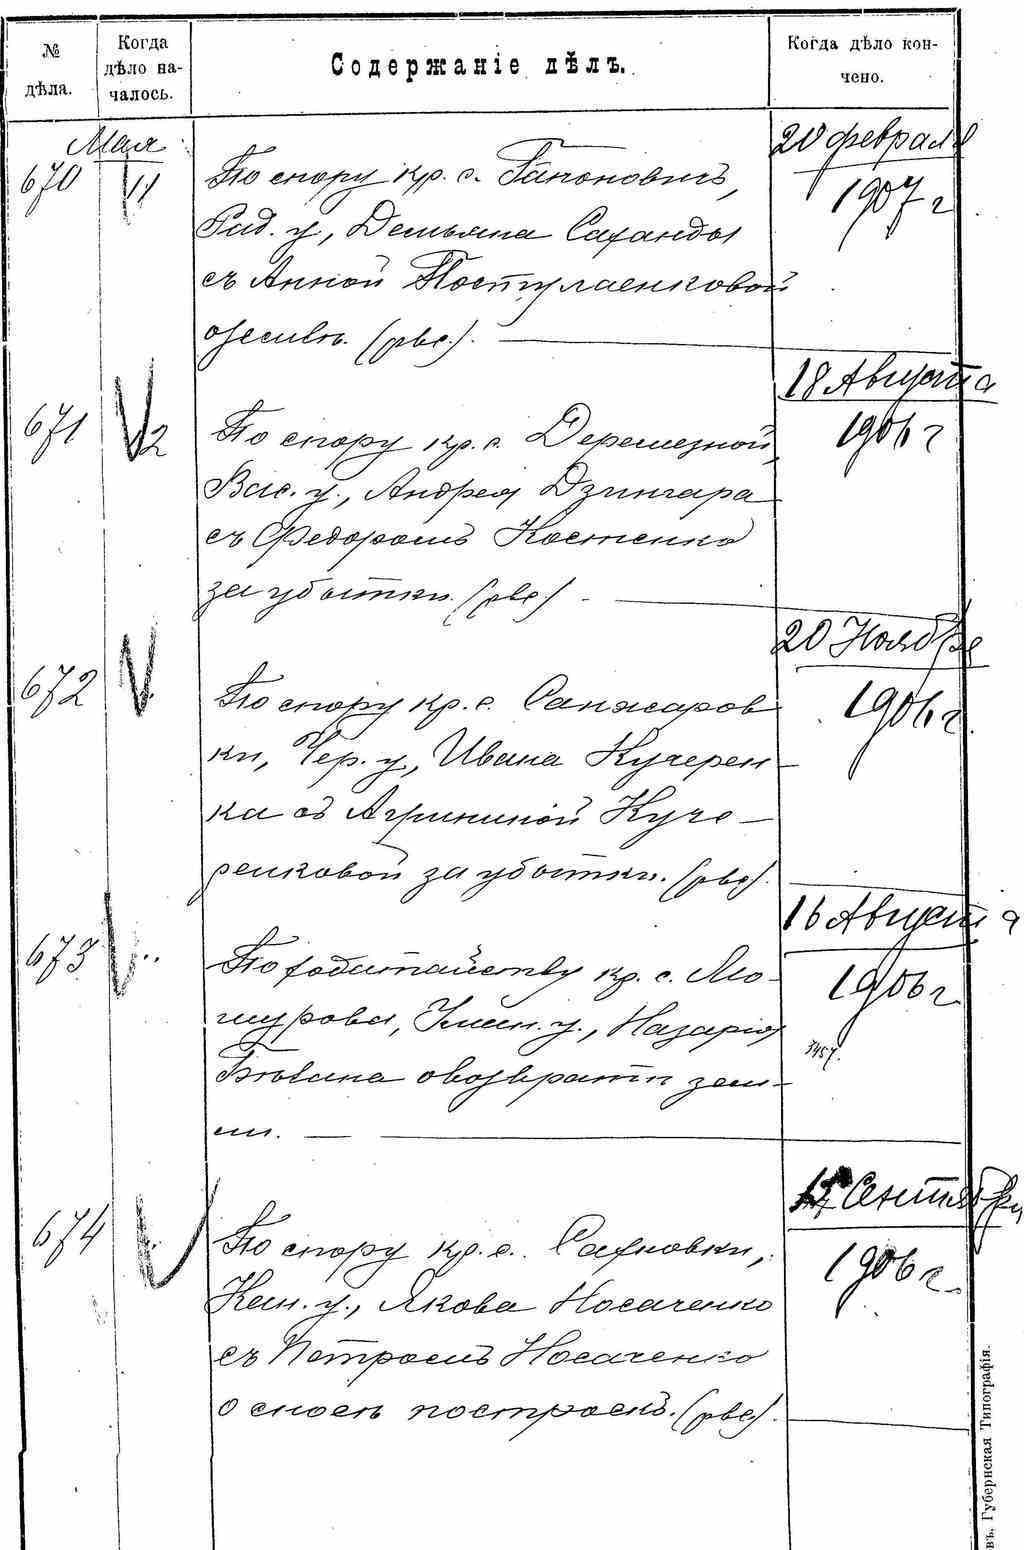 № дѣла.
Когда дѣло началось.
Содержаніе дѣлъ.
Когда дѣло кончено.
Мая
670
11
По спору кр. с. Гапоновичъ,
Рад. у., Демьяна Саханды
съ Анной Постулаенковой
о землѣ. (рвс.).
20 февраля
1907 г
671
12
По спору кр. с. Деремезной,
Вас. у., Андрея Дзингара
съ Федоромъ Костенко
за убытки. (рвс)
18 Августа
1906 г
672
По спору кр. с. Санжаров
ки, Чер. у., Ивана Кучерен-
ка съ Агрипиной Куче-
ренковой за убытки. (рвс).
20 Ноября
1906 г.
673
По ходатайству кр. с.
Уман. у., Назарія
о возвратѣ зем-
ли.
16 Августа
1906 г
3457.
674
По спору кр. с. Сахновки,
Кан. у., Якова Носаченко
съ Петромъ Носаченко
о сносѣ построекъ. (рвс).
Сентября
1906 г.
въ, Губернская Типографія.